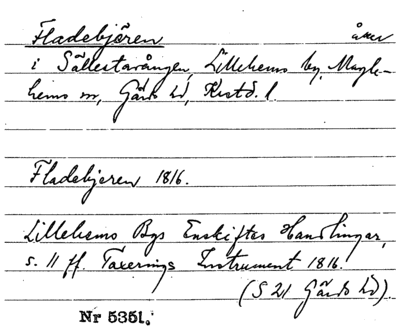 Fladebjören åker
i Sällestavången, Lillehems by, Magle-
hems sn, Gärds hd, Krstd. l.
Fladebjeren 1816.
Lillehems Bys Enskiftes Handlingar,
s. 11 ff. Taxerings Instrument 1816.
(S 21 Gärds hd).
Nr 5351.